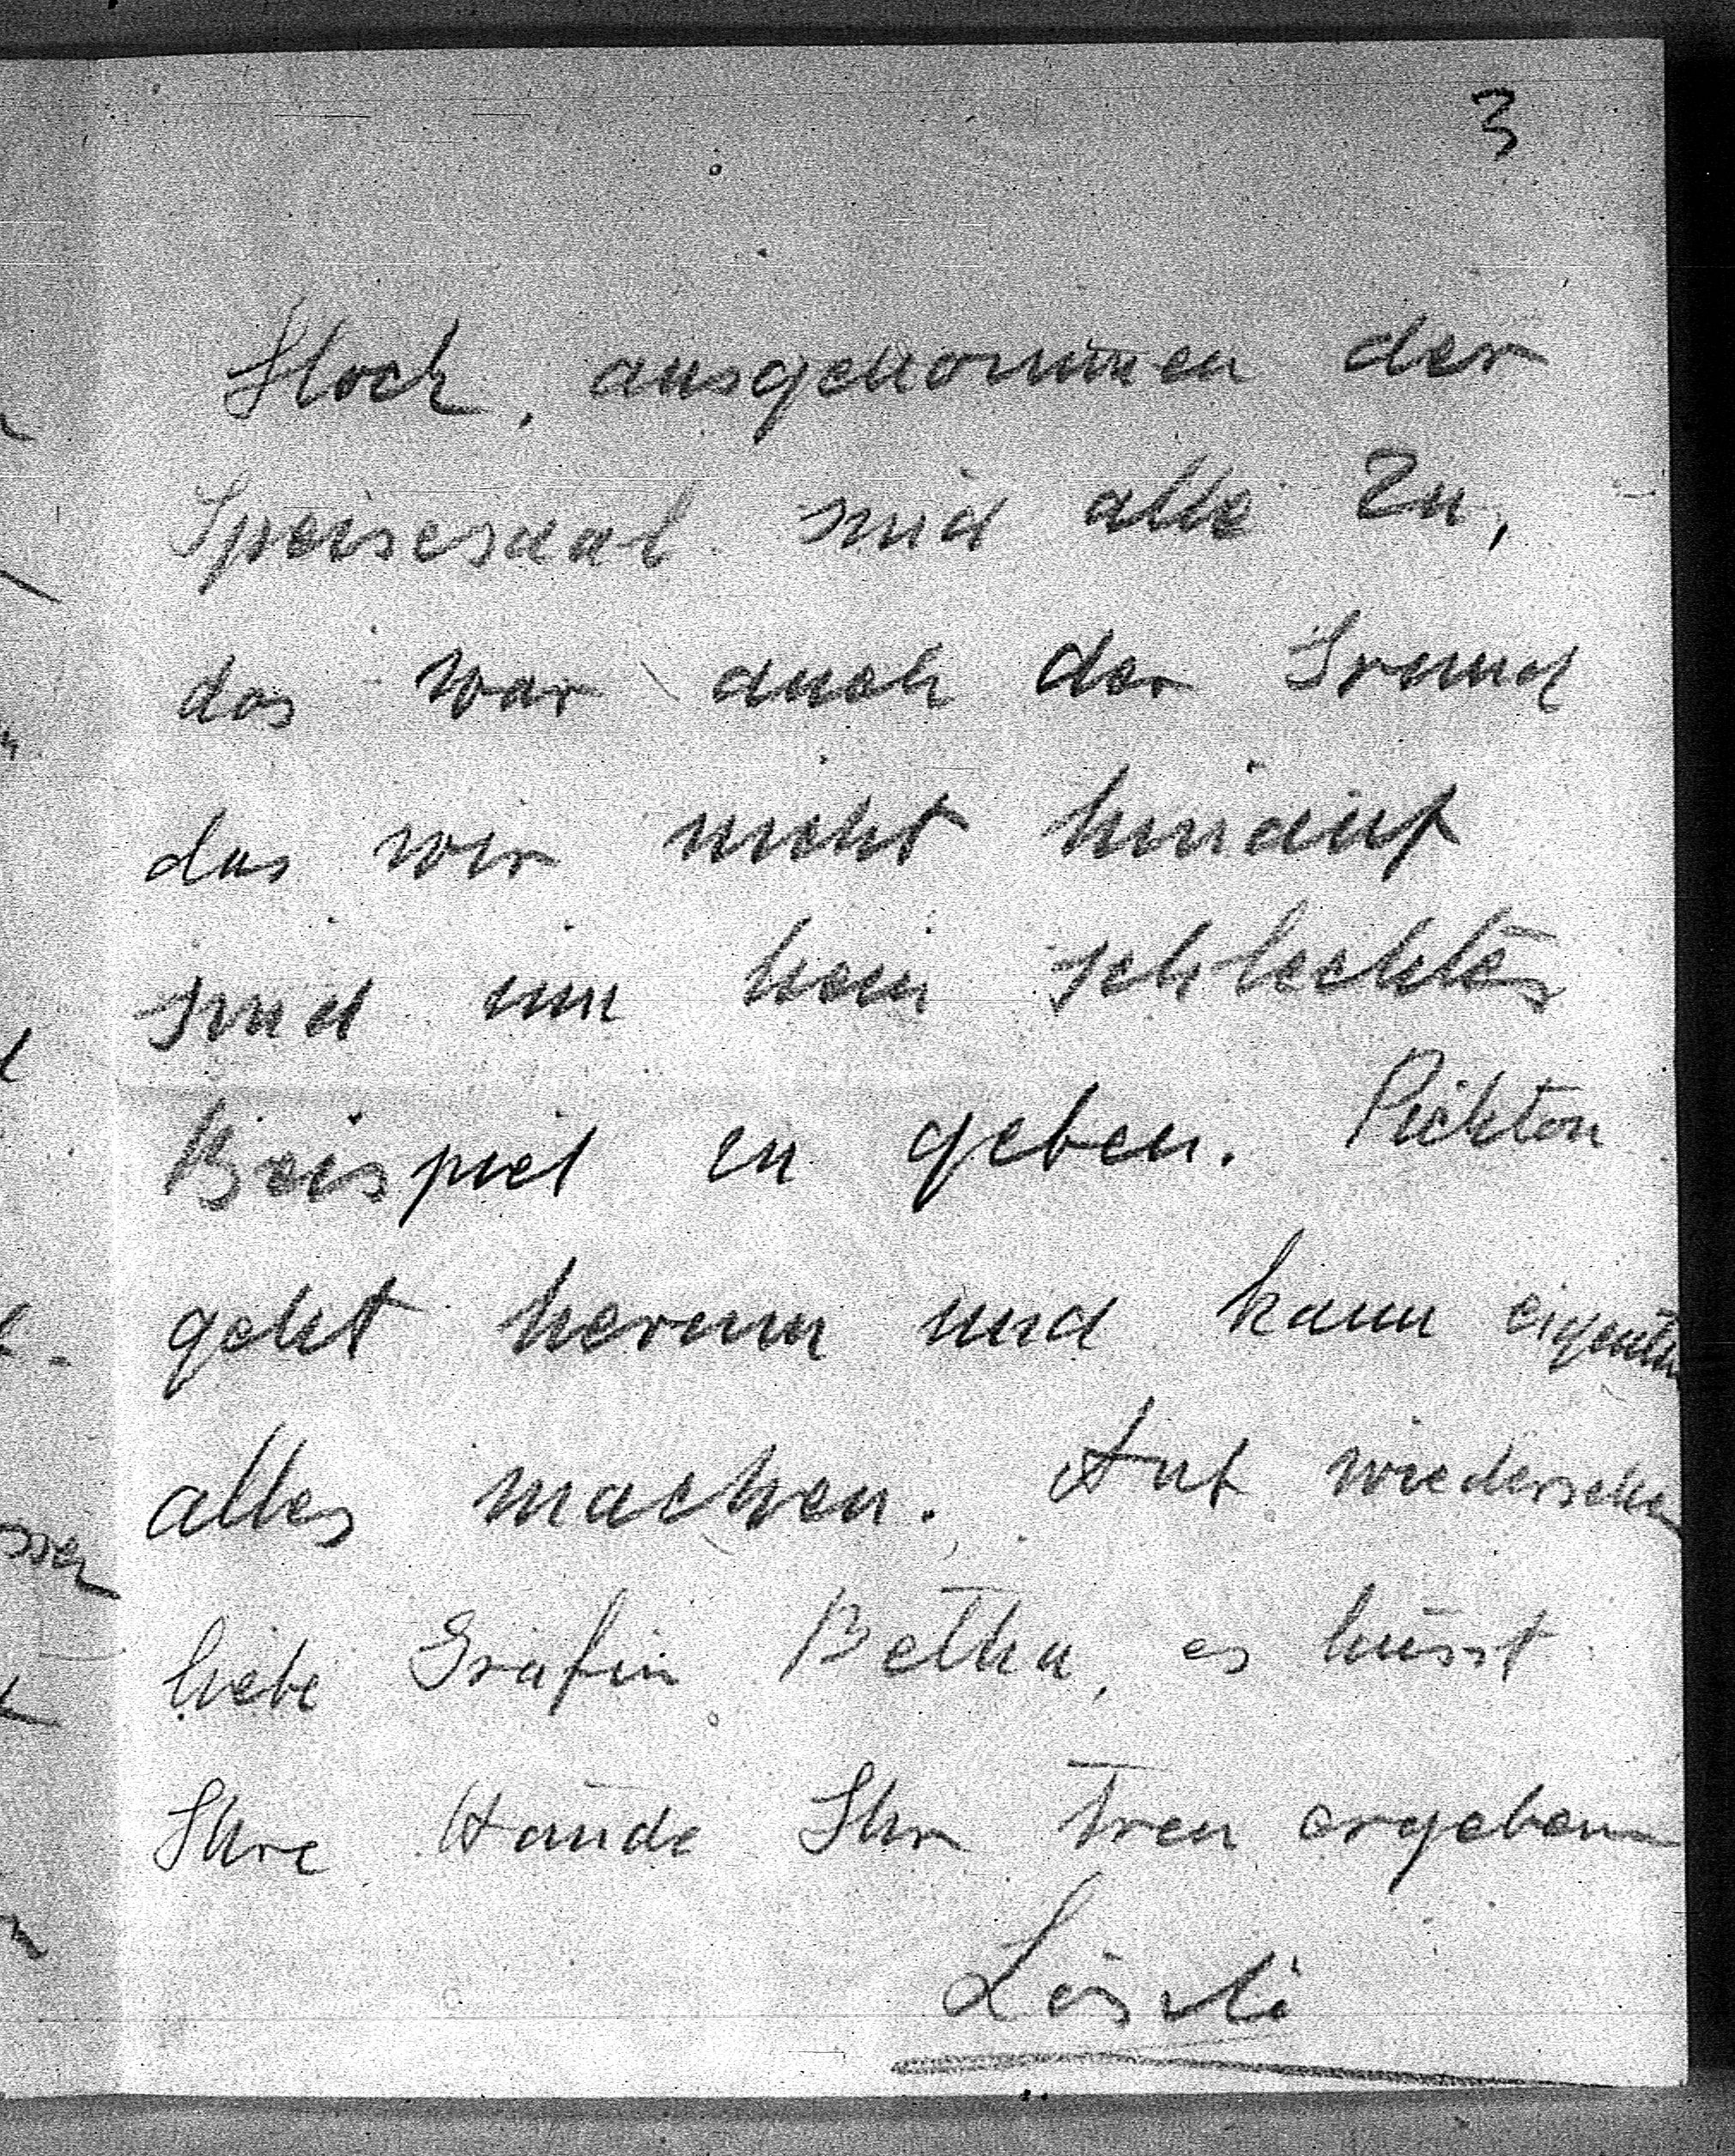 3
Stock, ausgenommen der
Speisesaal sind alle zu,
das war auch der Grund
das wir nicht hinauf
sind um kein schlechtes
Beispiel zu geben. Pickton
geht herum und kann eigentlich
alles machen. Auf wiedersehen
liebe Gräfin Betka, es küsst
Ihre Hände Ihr treu ergebener